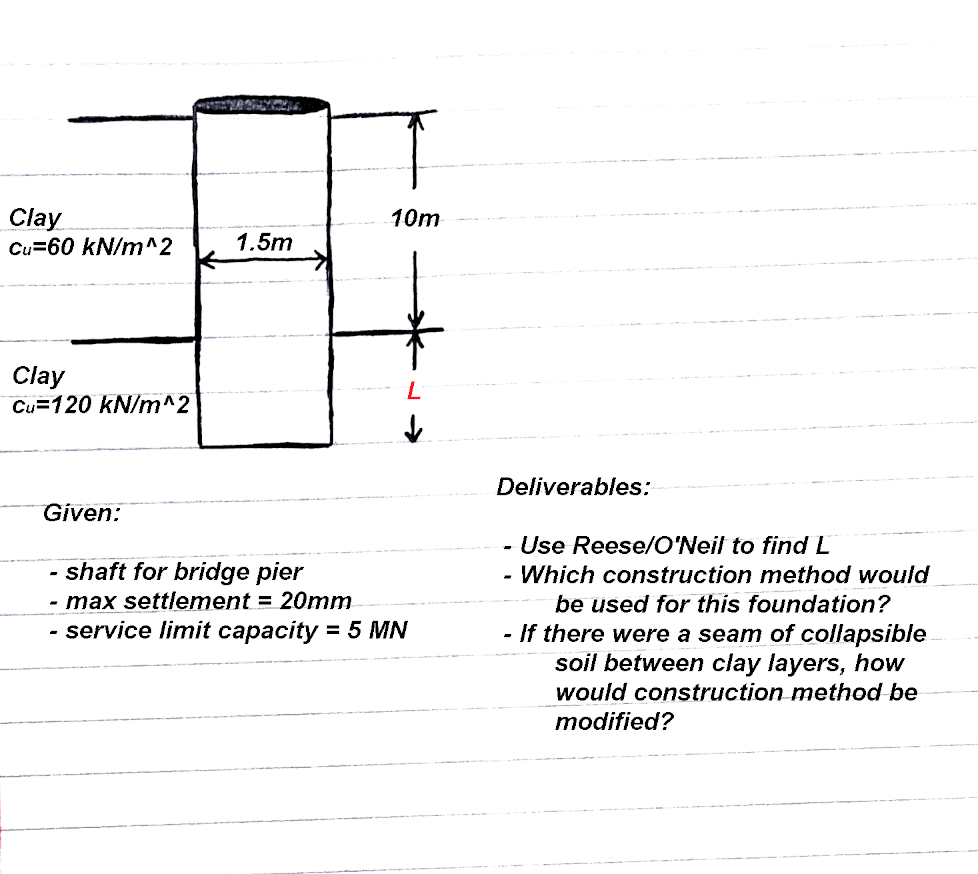 Clay
cu=60 kN/m^2
1.5m
10m
Clay
cu=120 kN/m^2
L
Given:
- shaft for bridge pier
- max settlement = 20mm
- service limit capacity = 5 MN
Deliverables:
- Use Reese/O'Neil to find L
- Which construction method would
be used for this foundation?
- If there were a seam of collapsible
soil between clay layers, how
would construction method be
modified?